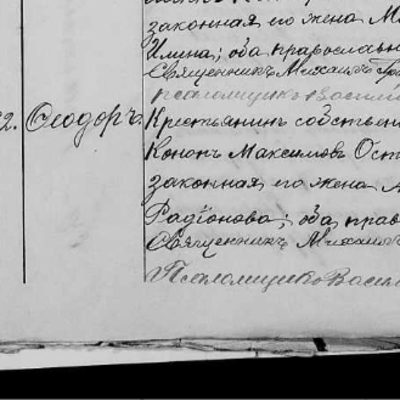 законная его жена М
Илина; оба православн
Священникъ Михаилъ Гро
псаломщикъ Василій
2. Ѳеодоръ Крестьянинъ собствен
Кононъ Максимовъ Ост
законная его жена
Радіонова; оба прав
Священникъ Михаил
Псаломщикъ Васил